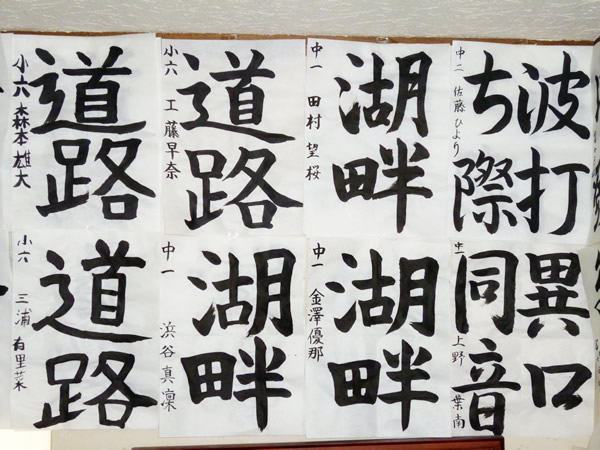 道路
小六 森本雄大
道路
小六 工藤早奈
湖畔
中一 田村望桜
波打
ち際
中二 佐藤ひより
道路
小六 三浦有里菜
湖畔
中一 浜谷真凜
湖畔
中一 金澤優那
異口
同音
中一 上野葉南